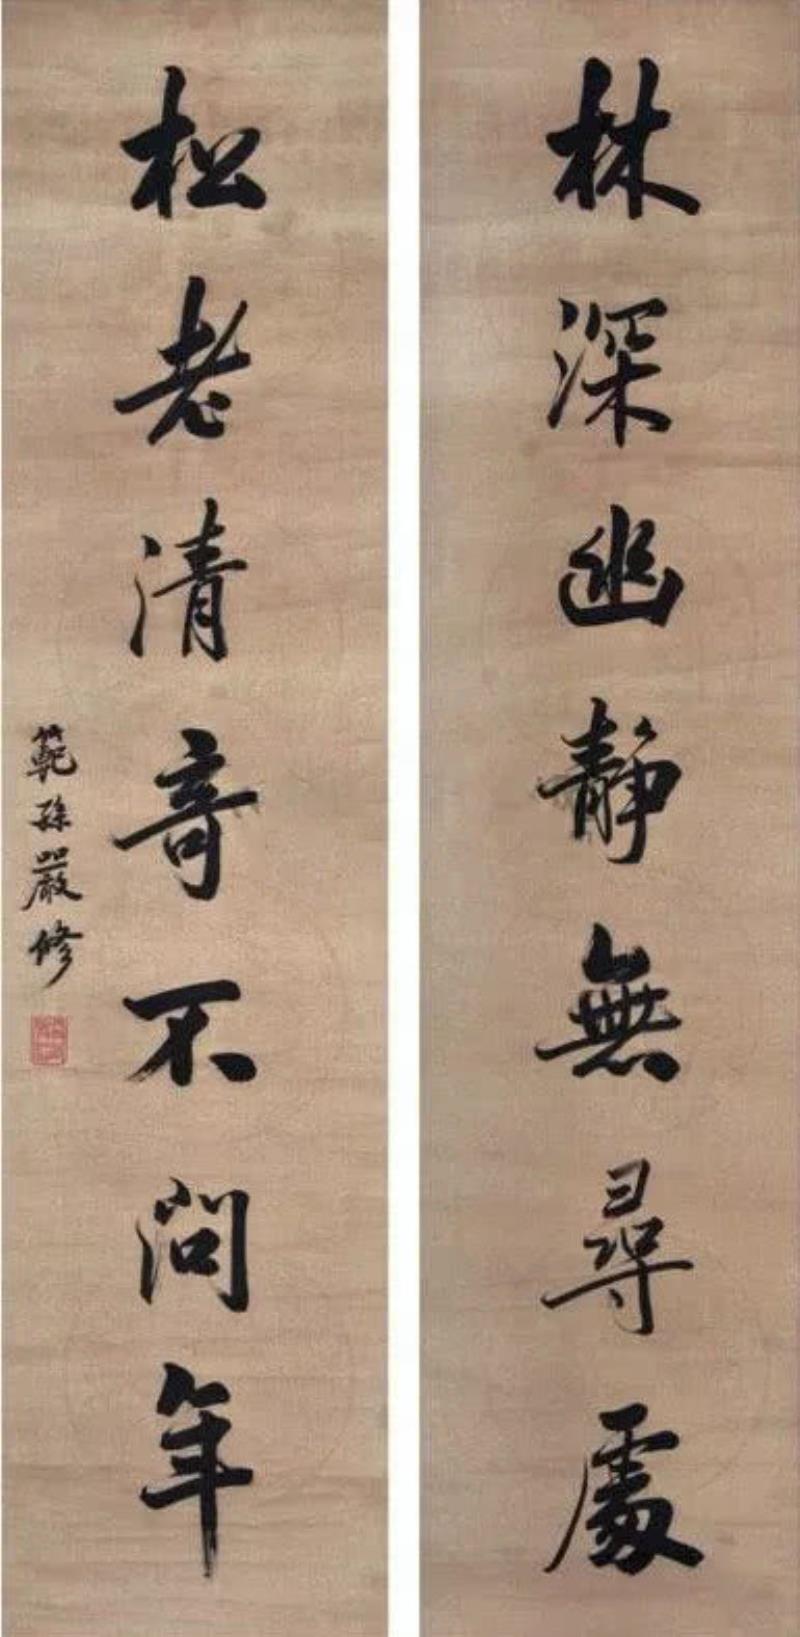 林深幽靜無尋處
松老清奇不問年
範孫嚴修